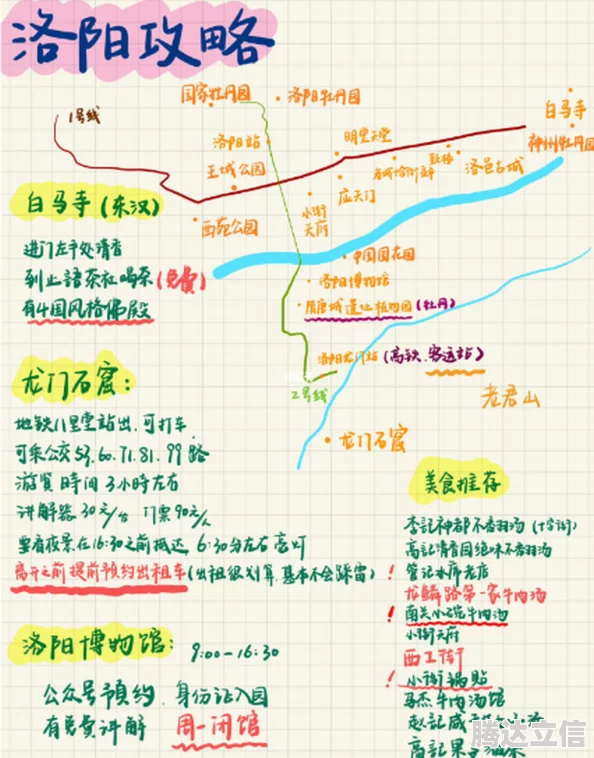 洛阳攻略
国家牡丹园
洛阳牡丹园
1号线
白马寺
洛阳站
明堂天堂
神州牡丹园
王城公园
洛邑古城
应天门
小街
天府
西苑公园
中国国花园
洛阳博物馆
隋唐城遗址植物园(牡丹)
洛阳龙门站(高铁、客运站)
2号线
老君山
龙门石窟
白马寺(东汉)
进门左手处请香
到止語茶社喝茶(免费)
有4国风格佛殿
龙门石窟:
地铁八里堂站出,可打车
可乘公交53.60.71.81.99路
游览时间3小時左右
讲解器30元/台 门票90元/人
要看夜景在16:30之前抵达 6:30分左右亮灯
离开之前提前预约出租车(出租很划算,基本不会踩雷)
洛阳博物馆: 9:00-16:30
公众号预约、身份证入园
有免费讲解 周一闭馆
美食推荐
李記神都不香羽汤(十字街)
高記清香园绝味不香羽汤
! 管记水席老店
龙鳞路第一家牛肉汤
! 南关小碗牛肉汤
小街天府
西工街
! 小街锅贴
马杰牛肉汤馆
腾达立信